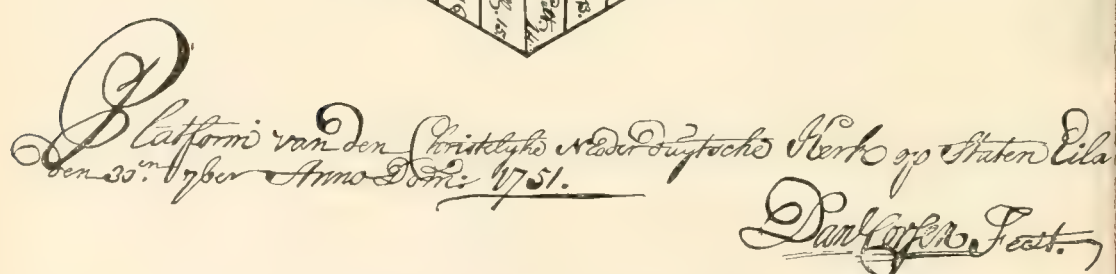 Platform van den Christelyke Neder Duytsche Kerk op Staten Eila
den 30.en 7ber Anno Dom: 1751.
Danl Corsen Fecit.